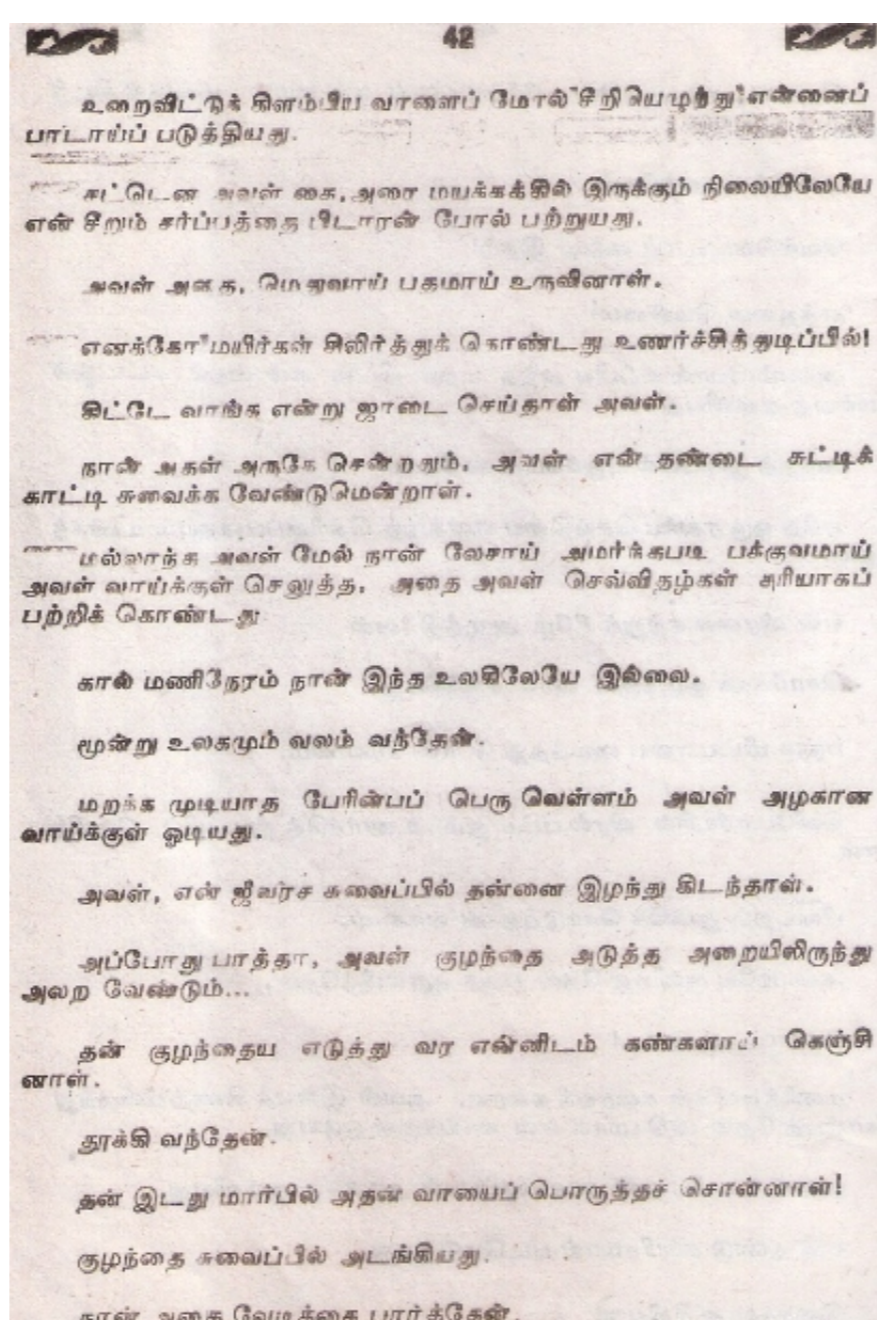 42
உறைவிட்டுக் கிளம்பிய வாளைப் போல் சீறியெழுந்து என்னைப்
பாடாய்ப் படுத்தியது.
சட்டென அவள் கை, அரை மயக்கத்தில் இருக்கும் நிலையிலேயே
என் சீறும் சர்ப்பத்தை பிடாரன் போல் பற்றுயது.
அவள் அதை, மெதுவாய் பதமாய் உருவினாள்.
எனக்கோ மயிர்கள் சிலிர்த்துக் கொண்டது உணர்ச்சித்துடிப்பில்!
கிட்டே வாங்க என்று ஜாடை செய்தாள் அவள்.
நான் அருகே சென்றதும், அவள் என் தண்டை சுட்டிக்
காட்டி சுவைக்க வேண்டுமென்றாள்.
மல்லாந்த அவள் மேல் நான் லேசாய் அமர்ந்தபடி பக்குவமாய்
அவள் வாய்க்குள் செலுத்த, அதை அவள் செவ்விதழ்கள் சரியாகப்
பற்றிக் கொண்டது
கால் மணிநேரம் நான் இந்த உலகிலேயே இல்லை.
மூன்று உலகமும் வலம் வந்தேன்.
மறக்க முடியாத பேரின்பப் பெரு வெள்ளம் அவள் அழகான
வாய்க்குள் ஓடியது.
அவள், என் ஜீவரச சுவைப்பில் தன்னை இழந்து கிடந்தாள்.
அப்போது பாத்தா, அவள் குழந்தை அடுத்த அறையிலிருந்து
அலற வேண்டும்...
தன் குழந்தைய எடுத்து வர என்னிடம் கண்களாய் கெஞ்சி
னாள்.
தூக்கி வந்தேன்.
தன் இடது மார்பில் அதன் வாயைப் பொருத்தச் சொன்னாள்!
குழந்தை சுவைப்பில் அடங்கியது.
நான் அதை வேடிக்கை பார்த்தேன்.